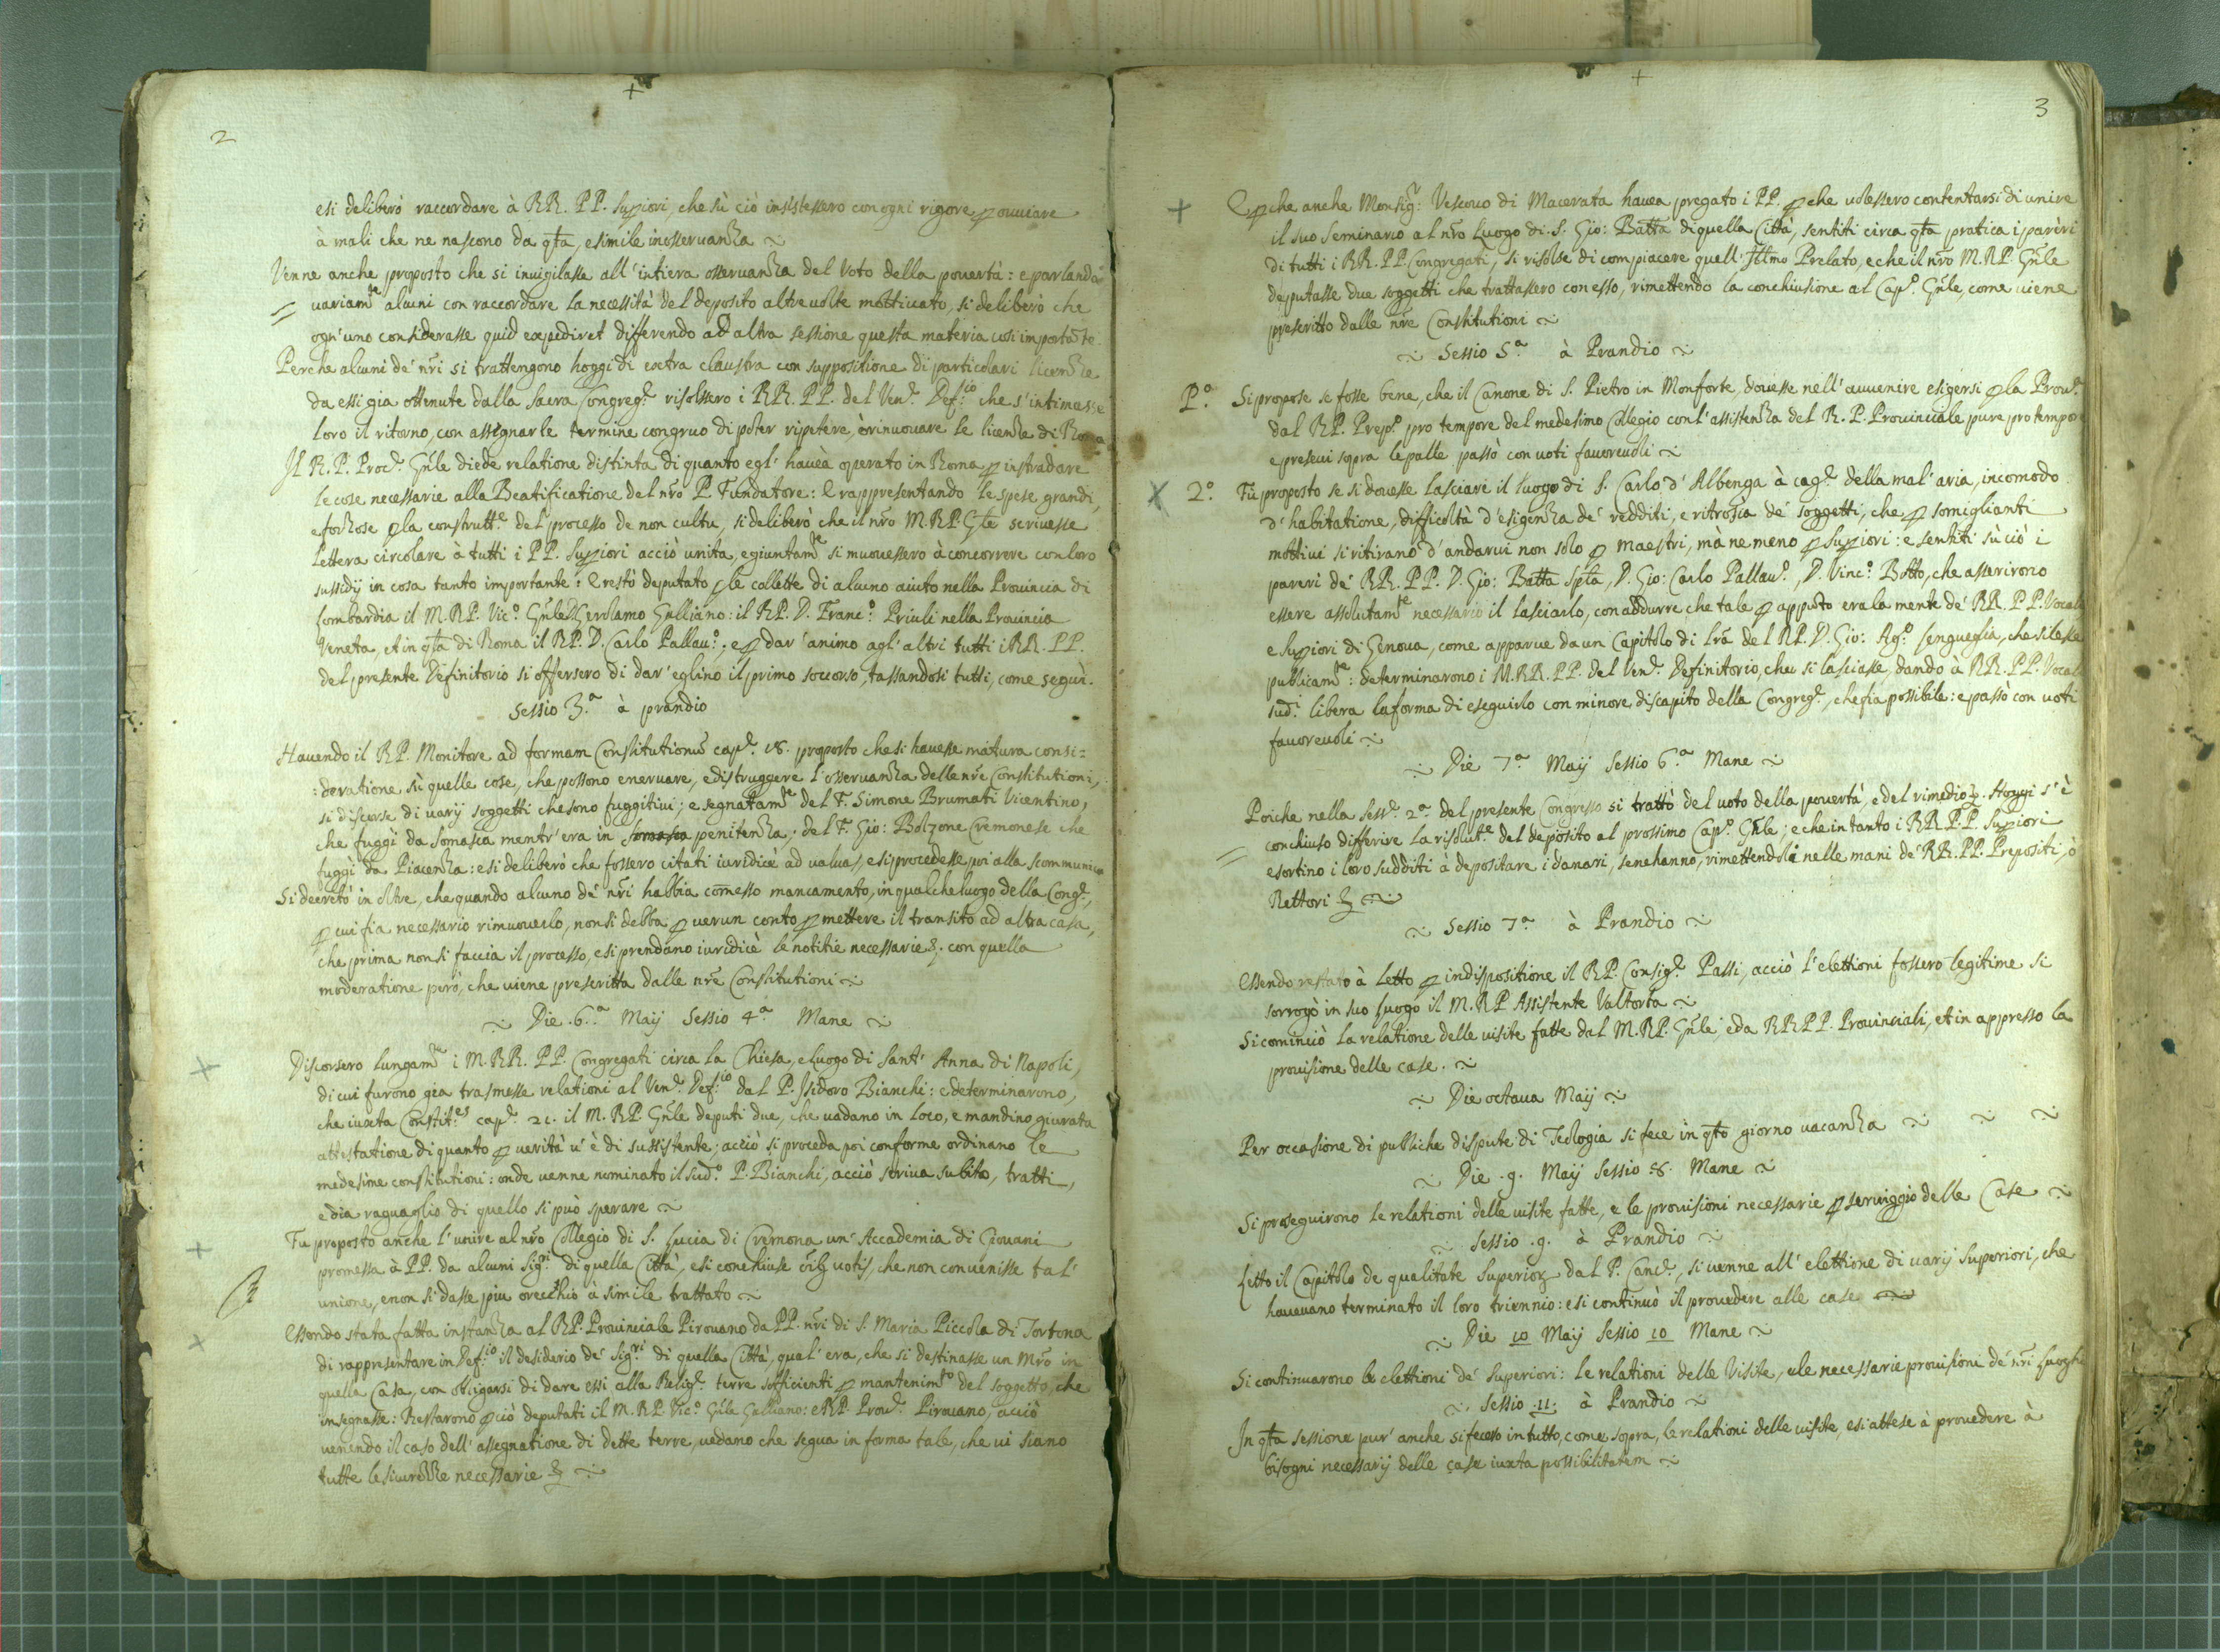 2
esi deliberò raccordare à RR. PP. Superiori, che sù ciò insistessero con ogni rigore per ouuiare
à mali che ne nascono da qta, e simile inosseruanza
Venne anche proposto che si inuigilasse all'intiera osseruanza del Voto della pouertà: e parlando
uariamte alcuni con raccordare la necessità del deposito altre uolte motiuato, si deliberò che
ogn'uno considerasse quid expediret differendo ad altra sessione questa materia così importāte.
Perche alcuni de' nri si trattengono hoggidi extra claustra con suppositione di particolari licenze
da essi gia ottenute dalla Sacra Congreg.e risolsero i RR. PP. del Ven.e Def.io che s'intimasse
loro il ritorno, con assignarle termine congruo di poter ripetere, ò rinuouare le licenze di Roma
Il R. P. Proc.e Gnle diede relatione distinta di quanto egl' hauea operato in Roma per instradare
le cose necessarie alla Beatificatione del nro P. Fundatore: e rappresentando le spese grandi,
e forzose per la construtt.e del processo de non cultu, si deliberò che il nro M.R.P. Gnle scriuesse
lettera circolare à tutti i PP. Superiori acciò unita, e giuntamte si mouessero à concorrere con loro
sussidij in cosa tanto importante: e restò deputato per le collette di alcuno aiuto nella Prouincia di
Lombardia il M.R.P. Vic.o Gnle D. Gerolamo Gulliano: il R.P. D. Franc.o Priuli nella Prouincia
Veneta, et in qta di Roma il R.P. D. Carlo Pallau.o: e per dar'animo agl'altri tutti i RR. PP.
del presente Definitorio si offersero di dar'eglino il primo soccorso, tassandosi tutti, come seguì.
Sessio 3.a à prandio
Hauendo il R.P. Monitore ad formam Constitutionū cap.e 18. proposto che si hauesse matura consi=
:deratione sù quelle cose, che possono eneruare, e distruggere l'osseruanza delle nre Constitutioni,
si discorse di uarij soggetti che sono fuggitiui; e segnatamte del F. Simone Brumati Vicentino,
che fuggì da Somasca mentr'era in penitenza: del F. Gio: Bolzone Cremonese che
fuggì da Piacenza: e si deliberò che fossero citati iuridicè ad ualuas, e si procedesse poi alla scommunica
Si decretò in oltre, che quando alcuno de' nri habbia comesso mancamento, in qualche luogo della Cong.e,
per cui sia necessario rimuouerlo, non si debba per uerun conto permettere il transito ad altra casa,
che prima non si faccia il processo, e si prendano iuridicè le notitie necessarie &. con quella
moderatione però, che uiene prescritta dalle nre Constitutioni
Die .6.a Maij Sessio 4.a Mane
Discorsero lungamte i M.RR. PP. Congregati circa la Chiesa, e luogo di Sant' Anna di Napoli,
di cui furono gia trasmesse relationi al Ven.e Def.io dal P. Isidoro Bianchi: e determinarono,
che iuxta Constit.es cap.e 21. il M.R.P. Gnle deputi due, che uadano in loco, e mandino giurata
attestatione di quanto per uerità u'è di sussistente, acciò si proceda poi conforme ordinano le
medesime constitutioni: onde uenne nominato il sud.o P. Bianchi, acciò scriua subito, tratti,
e dia raguaglio di quello si può sperare
Fu proposto anche l'unire al nro Collegio di S. Lucia di Cremona un' Accademia di Giouani
promessa à PP. da alcuni Sig.ri di quella Città, e si conchiuse oībus uotis, che non conuenisse tal'
unione, e non si dasse piu orecchio à simile trattato
Essendo stata fatta instanza al R.P. Prouinciale Pirouano da PP. nri di S. Maria Piccola di Tortona
di rappresentare in Def.io il desiderio de' Sig.ri di quella Città, qual'era, che si destinasse un Mro in
quella Casa, con obligarsi di dare essi alla Relig.e terre sofficienti per mantenimto del soggetto, che
insegnasse: Restarono per ciò deputati il M.R.P. Vic.o Gnle Gulliano: e R.P. Prou.e Pirouano, acciò
uenendo il caso dell'assegnatione di dette terre, uedano che segua in forma tale, che ui siano
tutte le sicurezze necessarie &
3
E perche anche Monsig.r Vescouo di Macerata hauea pregato i PP. perche uolessero contentarsi di unire
il suo Seminario al nro Luogo di S. Gio: Batta di quella Città, sentiti circa qta pratica i pareri
di tutti i RR. PP. Congregati, si risolse di compiacere quell' Illmo Prelato, e che il nro M.R.P. Gnle
deputasse due soggetti che trattassero con esso, rimettendo la conchiusione al Cap.o Gnle, come uiene
prescritto dalle nre Constitutioni
Sessio 5.a à Prandio
P.o Si propose se fosse bene, che il Canone di S. Pietro in Monforte, douesse nell'auuenire esigersi per la Prou.e
dal R.P. Prep.o pro tempore del medesimo Collegio con l'assistenza del R. P. Prouinciale pure pro tempore
e preseui sopra le palle passò con uoti fauoreuoli
2.o Fù proposto se si douesse lasciare il luogo di S. Carlo d'Albenga à cag.e della mal'aria, incomodo
d'habitatione, difficoltà d'esigenza de' redditi, e ritrosia de' soggetti, che per somiglianti
mottiui si ritirano d'andarui non solo per maestri, mà ne meno per Superiori: e sentiti sù ciò i
pareri de' RR. PP. D. Gio: Batta Spla, D. Gio: Carlo Pallau.o, D. Vinc.o Botto, che asserirono
essere assolutamte necessario il lasciarlo, con addurre che tale per apputo era la mente de' RR. PP. Vocali
e Superiori di Genoua, come apparue da un Capitolo di lra del R.P. D. Gio: Ag.o Sengueglia, che si lesse
publicamte: determinarono i M.RR. PP. del Ven.e Definitorio, che si lasciasse, dando à RR. PP. Vocali
sud.i libera la forma di eseguirlo con minore discapito della Congreg.e, che sia possibile: e passò con uoti
fauoreuoli
Die 7.a Maij Sessio 6.a Mane
Poiche nella Sess.e 2.a del presente Congresso si trattò del uoto della pouertà, e del rimedio &. Hoggi s'è
conchiuso differire la risolut.e del deposito al prossimo Cap.o Gnle; e che in tanto i RR. PP. Superiori
esortino i loro sudditi à depositare i danari, se ne hanno, rimettendoli nelle mani de' RR. PP. Prepositi, ò
Rettori &
Sessio 7.a à Prandio
Essendo restato à letto per indispositione il R.P. Consig.e Passi, acciò l'elettioni fossero legitime si
sorrogò in suo luogo il M.R.P. Assistente Valtorta
Si cominciò la relatione delle uisite fatte dal M.R.P. Gnle e da RR.PP. Prouinciali, et in appresso la
prouisione delle case.
Die octaua Maij
Per occasione di publiche dispute di Teologia si fece in qto giorno uacanza
Die .9. Maij Sessio .8. Mane
Si proseguirono le relationi delle uisite fatte, e le prouisioni necessarie per seruiggio delle Case
Sessio .9. à Prandio
Letto il Capitolo de qualitate Superiorum dal P. Canc.e, si uenne all' elettione di uarij Superiori, che
haueuano terminato il loro triennio: e si continuò il prouedere alle case
Die 10 Maij Sessio 10 Mane
Si continuarono le elettioni de' Superiori: le relationi delle Visite, e le necessarie prouisioni de' nri luoghi
Sessio .11. à Prandio
In qta sessione pur' anche si fecero in tutto, come sopra, le relationi delle uisite, e si attese à prouedere à
bisogni necessarij delle case iuxta possibilitatem